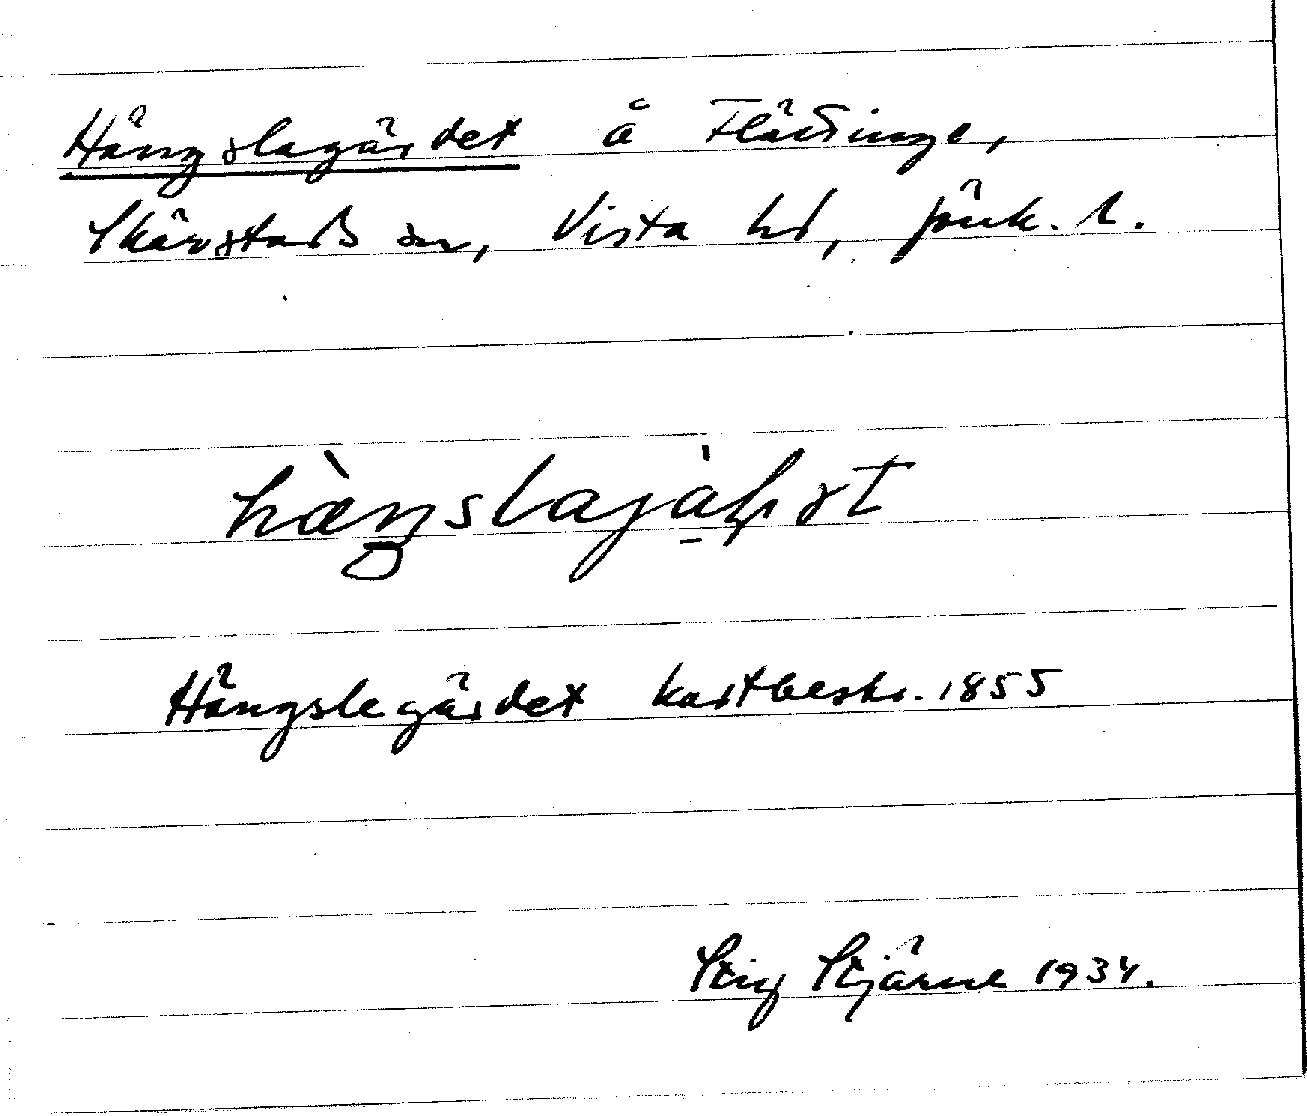 Hängslagärdet å Flättinge,
Skärstads sn, Vista hd, Jönk. l.
Hängslegärdet kartbeskr. 1855
Stig Stjärne 1934.